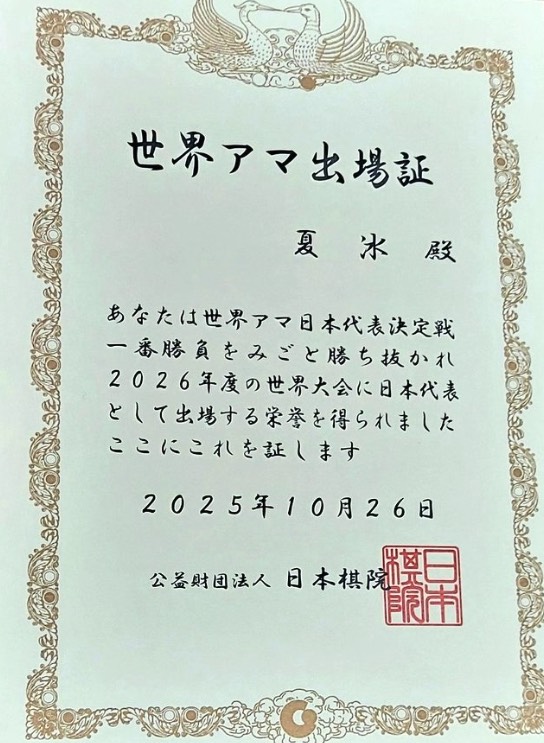 世界アマ出場証
夏 冰 殿
あなたは世界アマ日本代表決定戦
一番勝負をみごと勝ち抜かれ
2026年度の世界大会に日本代表
として出場する栄誉を得られました
ここにこれを証します
2025年10月26日
公益財団法人 日本棋院
日本棋院